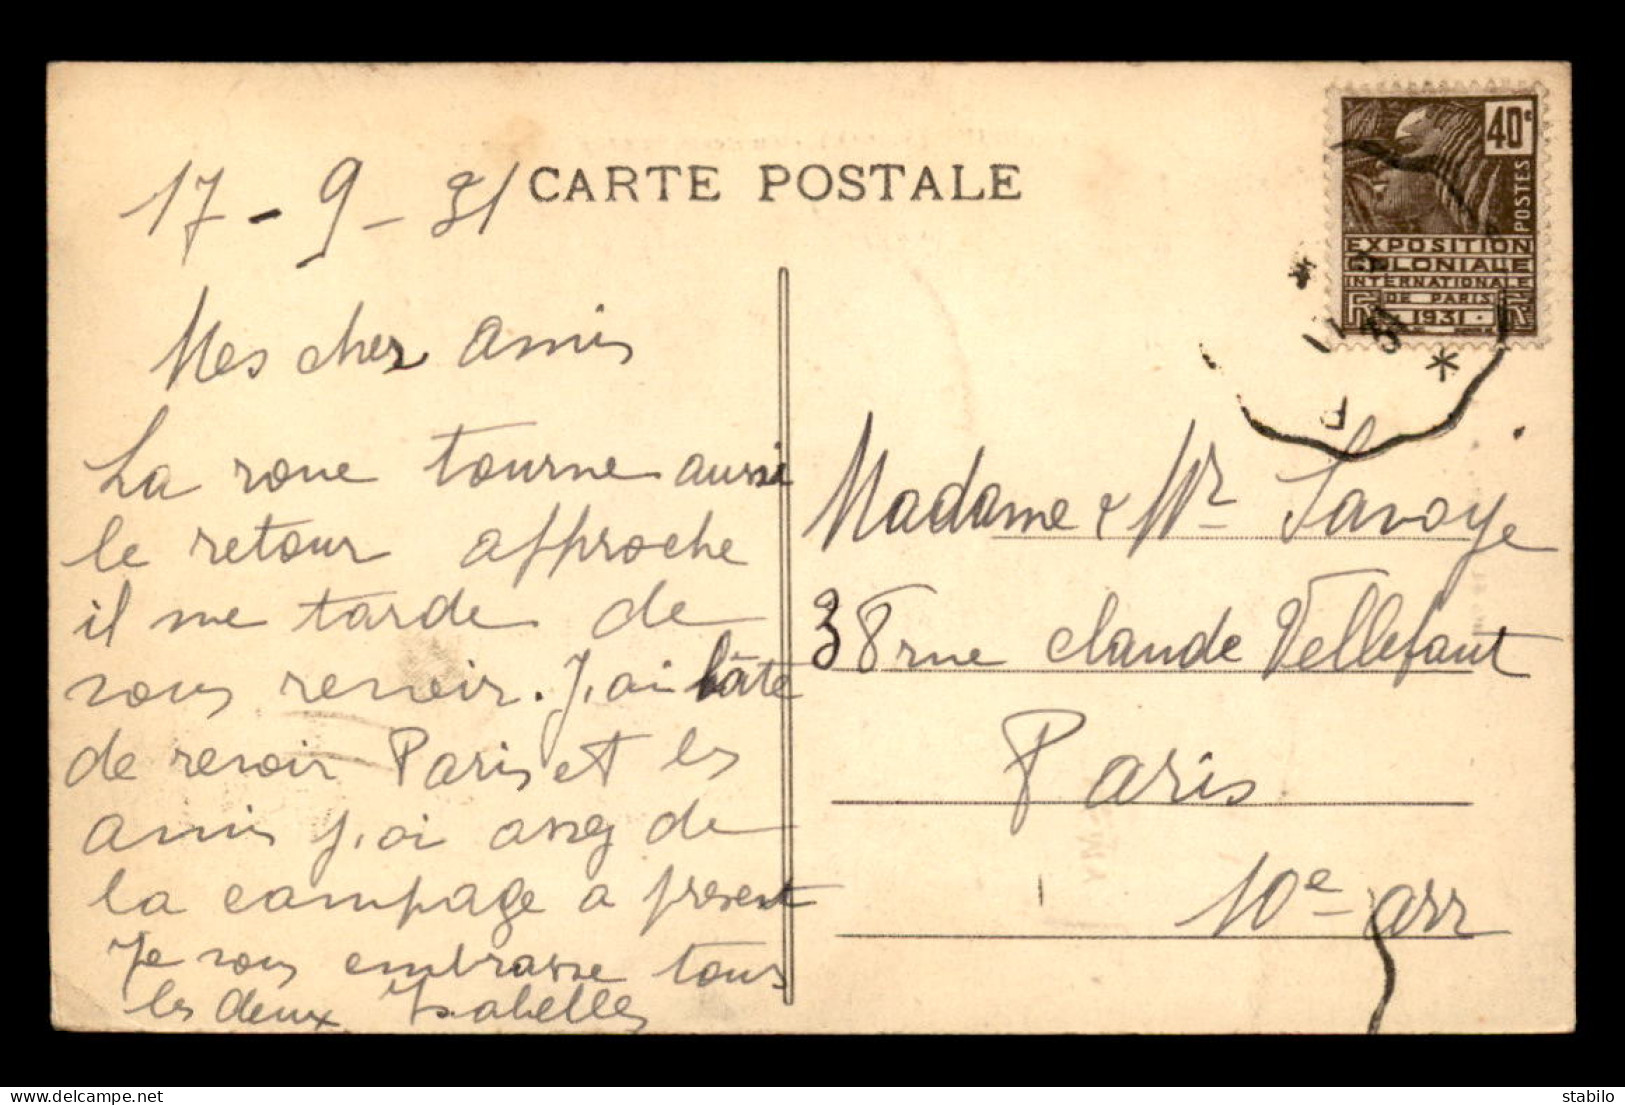 CARTE POSTALE
17-9-31
Mes cher amis
La roue tourne aussi
le retour approche
il me tarde de
vous revoir. J,ai hâte
de revoir Paris et les
amis j,ai assez de
la campage a present
Je vous embrasse tous
les deux Isabelle
40c
POSTES
EXPOSITION
COLONIALE
INTERNATIONALE
DE PARIS
1931
Madame & Mr Savoye
38 rue claude Vellefaut
Paris
10e arr
stabilo
https://www.delcampe.net